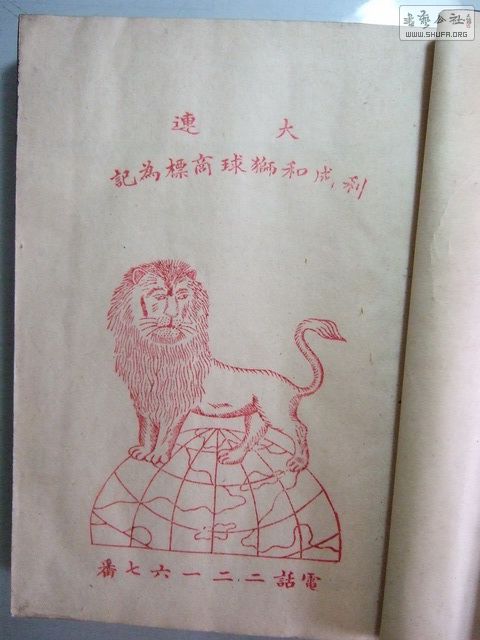 大連
利成和獅球商標為記
電話二二一六七番
書藝公社
WWW.SHUFA.ORG